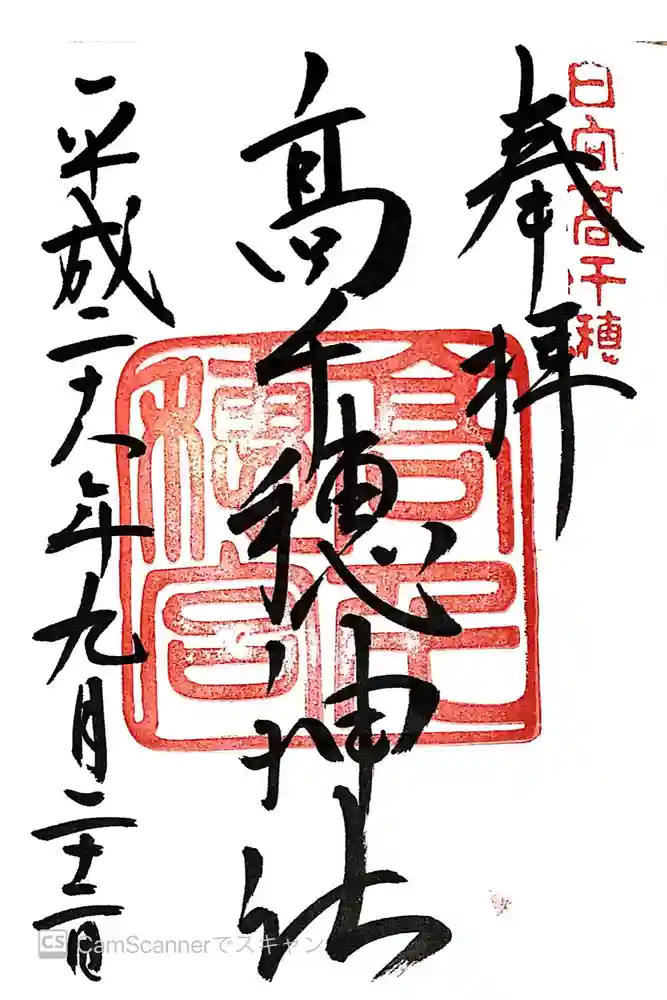 日向髙千穂
奉拝
高千穂神社
高千穂宮
平成二十八年九月二十二日
CS CamScannerでスキャン